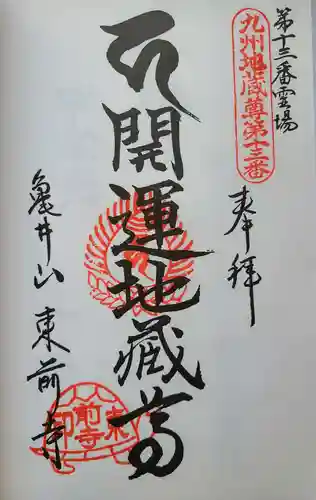 第十三番霊場
九州地蔵尊第十三番
奉拝
開運地蔵尊
亀井山 東前寺
東前寺印